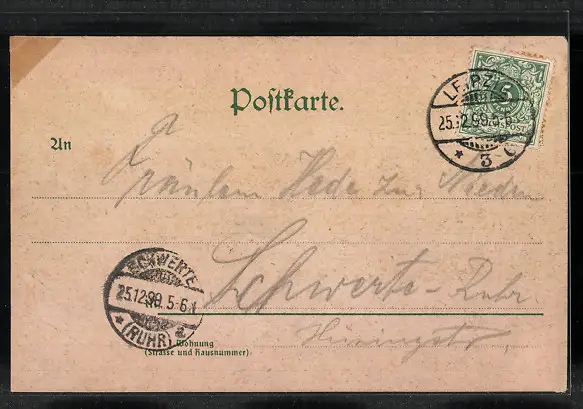 Postkarte.
5
LEIPZIG
25.12.99.
* 3
An
Fräulein Hede zur Nieden
Schwerte-Ruhr.
SCHWERTE
25.12.99. 5-6N
* (RUHR)
Wohnung
(Strasse und Hausnummer)